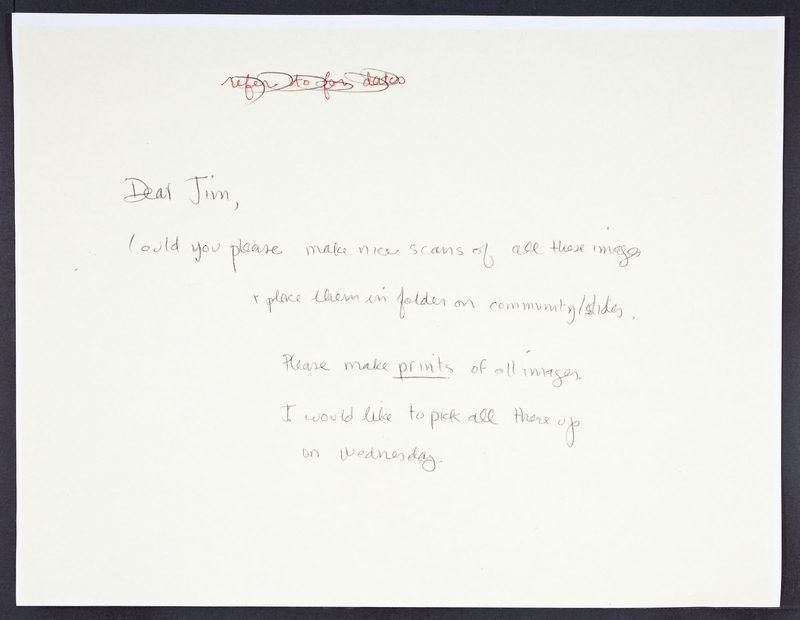 refer to for dates
Dear Jim,
Could you please make nice scans of all these images
+ place them in folder on community/slides.
Please make prints of all images
I would like to pick all these up
on Wednesday.